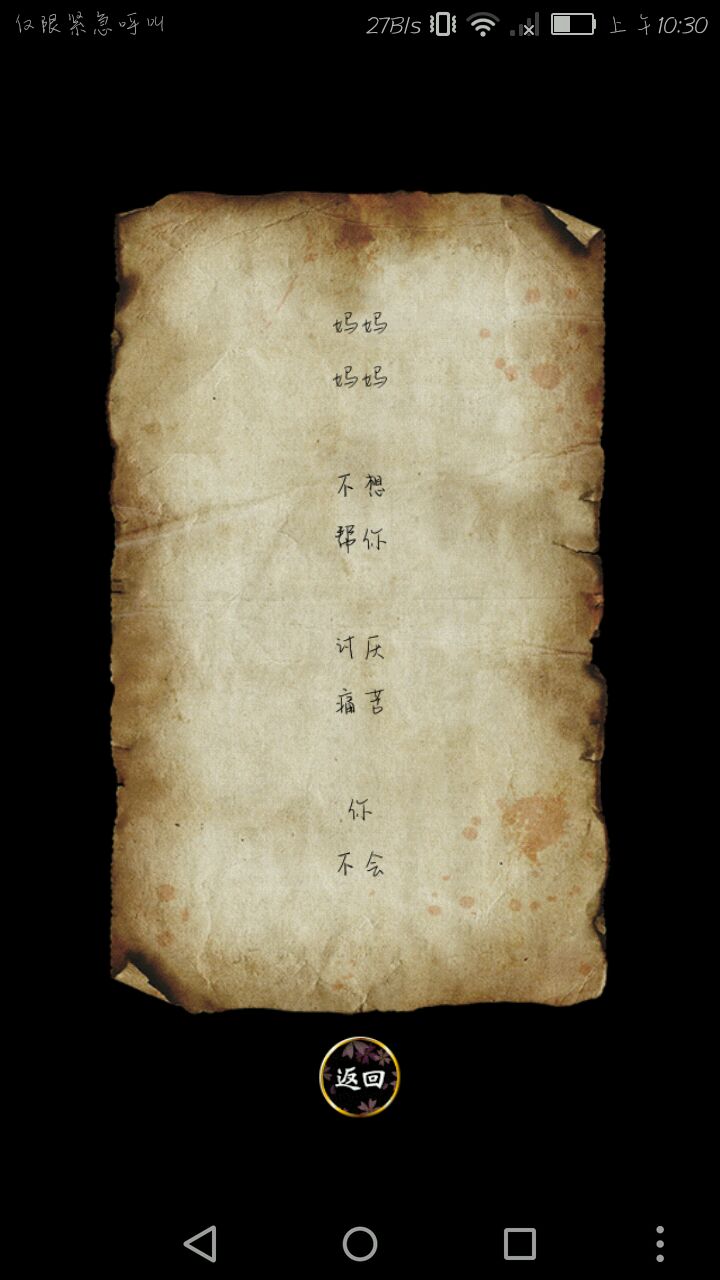 仅限紧急呼叫 27B/s 上午10:30
妈妈
妈妈
不想
帮你
讨厌
痛苦
你
不会
返回